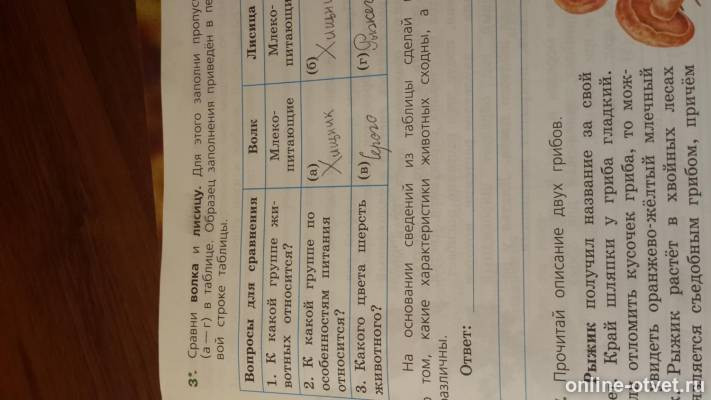 3*. Сравни волка и лисицу. Для этого заполни
(а — г) в таблице. Образец заполнения приведён в
вой строке таблицы.
Вопросы для сравнения Волк Лисица
1. К какой группе жи- Млеко- Млеко-
вотных относится? питающие
2. К какой группе по (а) Хищник (б)
особенностям питания
относится?
3. Какого цвета шерсть (в) Серого (г)
животного?
На основании сведений из таблицы сделай
том, какие характеристики животных сходны, а
Ответ:
Прочитай описание двух грибов.
Рыжик получил название за свой
Край шляпки у гриба гладкий.
отломить кусочек гриба, то мож-
оранжево-жёлтый млечный
Рыжик растёт в хвойных лесах
съедобным грибом, причём
online-otvet.ru